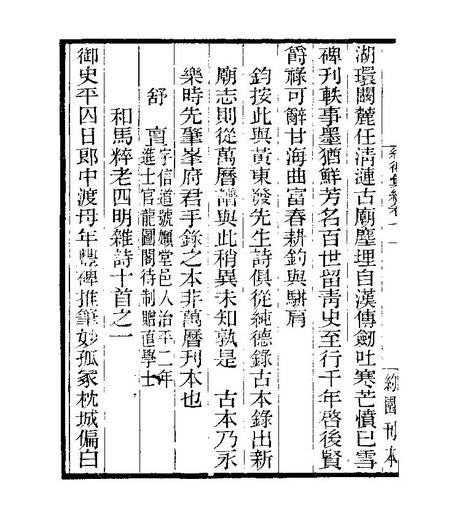 約園刊本
湖環闞麓任淸漣古廟塵理自漢傳劒吐寒芒憤已雪
碑刊軼事墨猶鮮芳名百世留靑史至行千年啓後賢
爵祿可辭甘海曲富春耕釣與駢肩
鈞按此與黃東發先生詩俱從純德錄古本錄出新
廟志則從萬曆譜與此稍異未知孰是　古本乃永
樂時先肇峯府君手錄之本非萬曆刊本也
舒亶
字信道號嬾堂邑人治平二年
進士官龍圖閣待制贈直學士
和馬粹老四明雜詩十首之一
御史平囚日郞中渡母年豐碑推筆妙孤冢枕城偏白